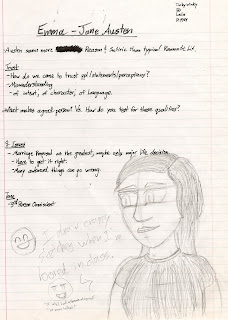 Emma - Jane Austen
Austen seems more Reason & Satiric than typical Romantic Lit.
Trust
- How do we come to trust ppl/statements/perceptions?
- Misunderstanding
- of intent, of character, of language.
What makes a good person? Vs. How do you test for those qualities?
- Marriage Proposal as the greatest, maybe only major life decision.
- Have to get it right.
- Many awkward things can go wrong.
Tone
- 3rd Person Omniscient
I draw crappy
doodles when I'm
bored in class.